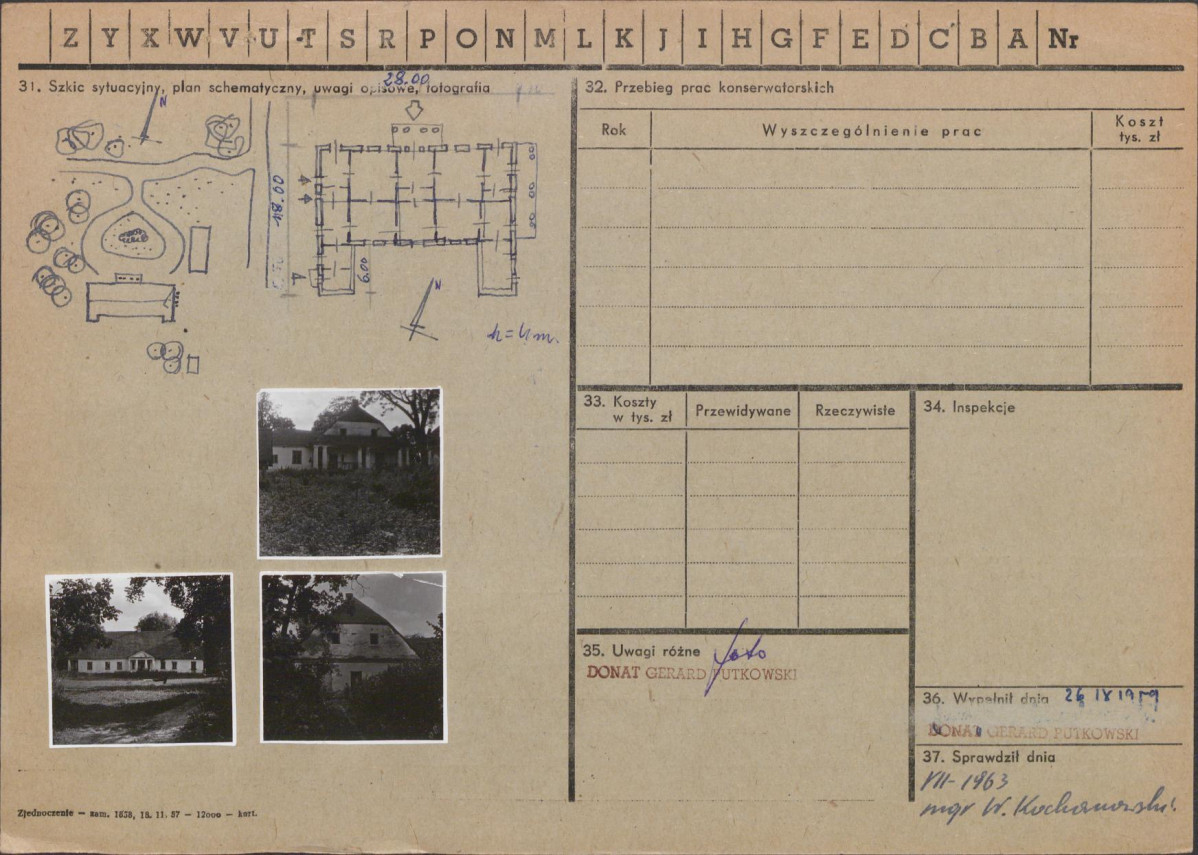 Z Y X W V U T S R P O N M L K J I H G F E D C B A Nr
31. Szkic sytuacyjny, plan schematyczny, uwagi opisowe, fotografia
28.00
N
18.00
6.00
N
h = 4 m.
32. Przebieg prac konserwatorskich
Rok
Wyszczególnienie prac
Koszt
tys. zł
33. Koszty
w tys. zł
Przewidywane
Rzeczywiste
34. Inspekcje
35. Uwagi różne
foto
DONAT GERARD PUTKOWSKI
36. Wypełnił dnia 26 IX 1959
DONAT GERARD PUTKOWSKI
37. Sprawdził dnia
VII - 1963
mgr W. Kochanowski
Zjednoczenie — zam. 1638, 18. 11. 57 — 12000 — kart.